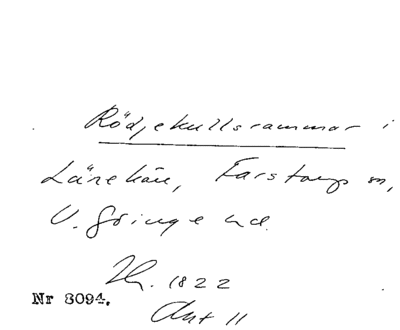 Rödjekullsrammar i
Länekän, Farstorp sn,
V. Göinge hd.
Th. 1822
Nr 3094.
Ant 11